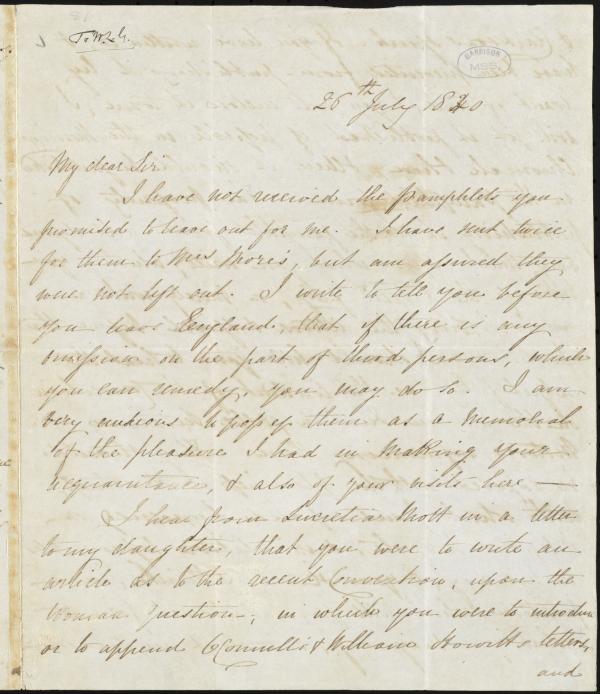 To W.L.G.
GARRISON
MSS.
26th July 1840
My dear Sir
I have not received the pamphlets you
promised to leave out for me. I have sent twice
for them to Mrs Moore's, but am assured they
were not left out. I write to tell you before
you leave England, that if there is any
omission on the part of third persons, which
you can remedy, you may do so. I am
very anxious to possess them as a memorial
of the pleasure I had in making your
acquaintance, & also of your visits here —
I hear from Lucretia Mott in a letter
to my daughter, that you were to write an
article as to the recent Convention, upon the
Woman question, in which you were to introduce
or to append O'Connell's & William Howitts letters,
and